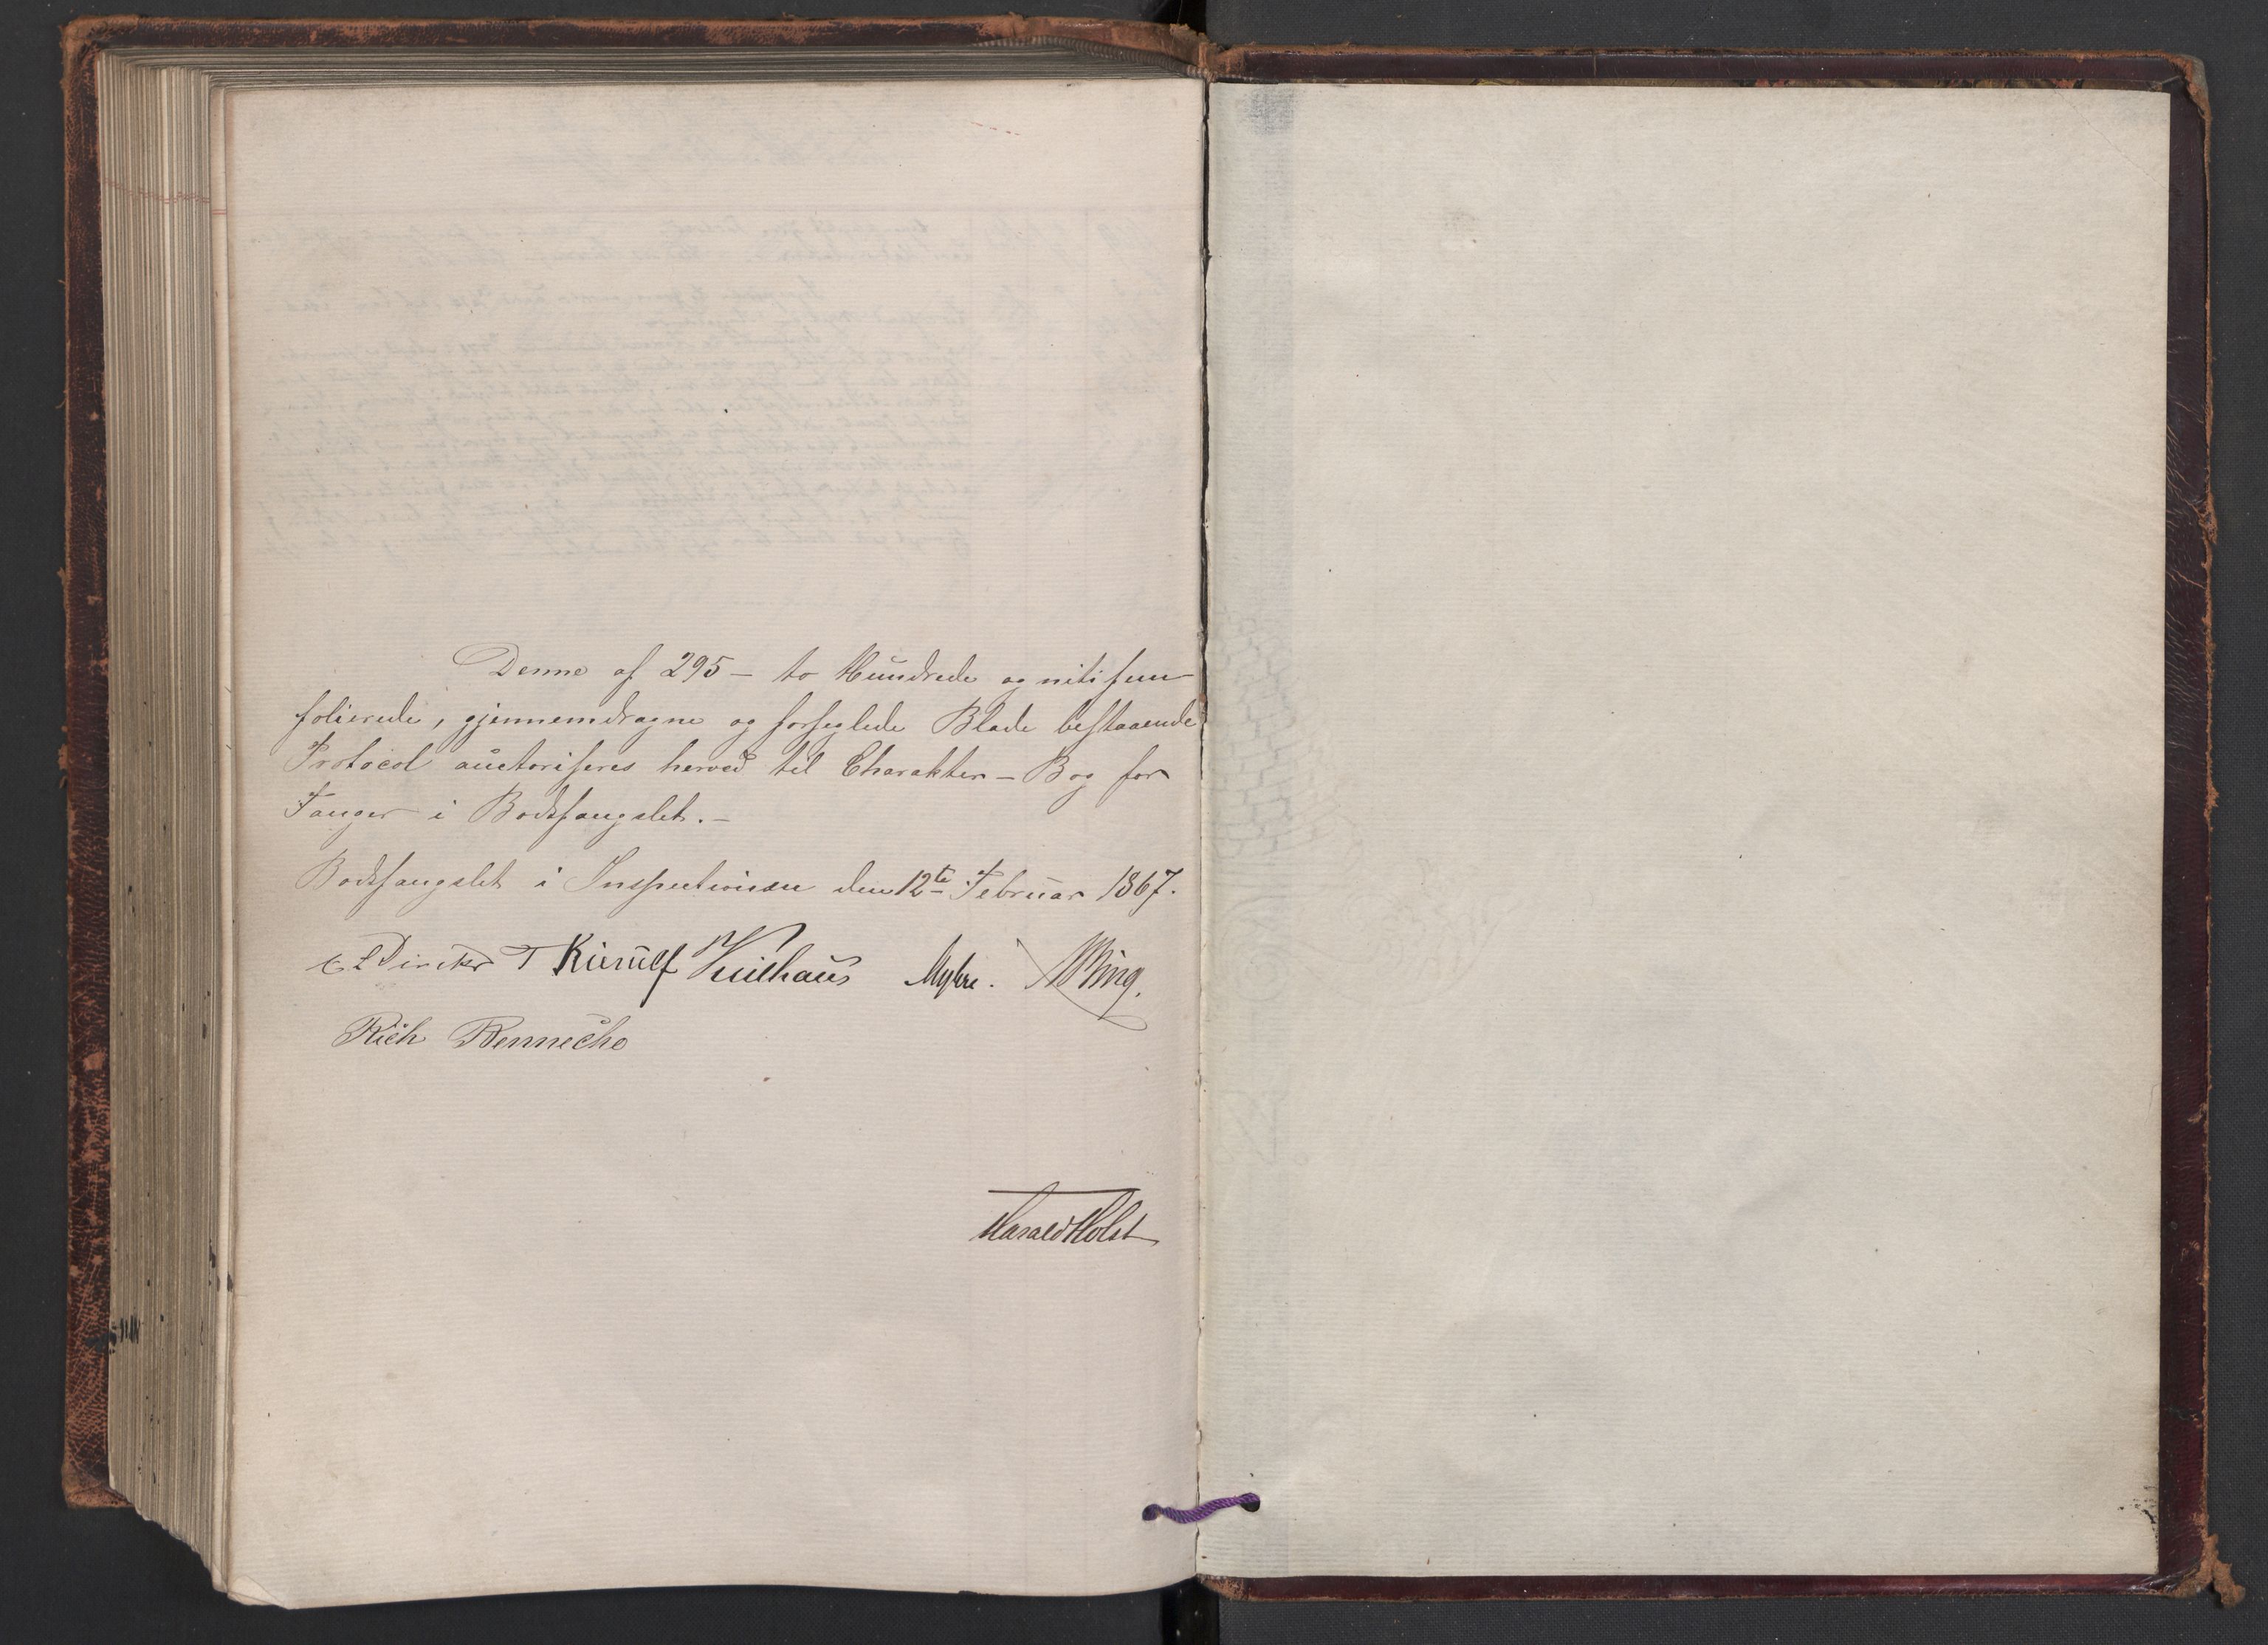 Denne af 295 – to Hundrede og niti fem
folierede, gjennemdragne og forseglede Blade bestaaende
Protocol auctoriseres herved til Charakter – Bog for
Fanger i Bodsfængslet. –
Bodsfængslet i Inspectionen den 12te Februar 1867.
Kierulf Keilhau Myhre. Bing.
Rich
Harald Holst